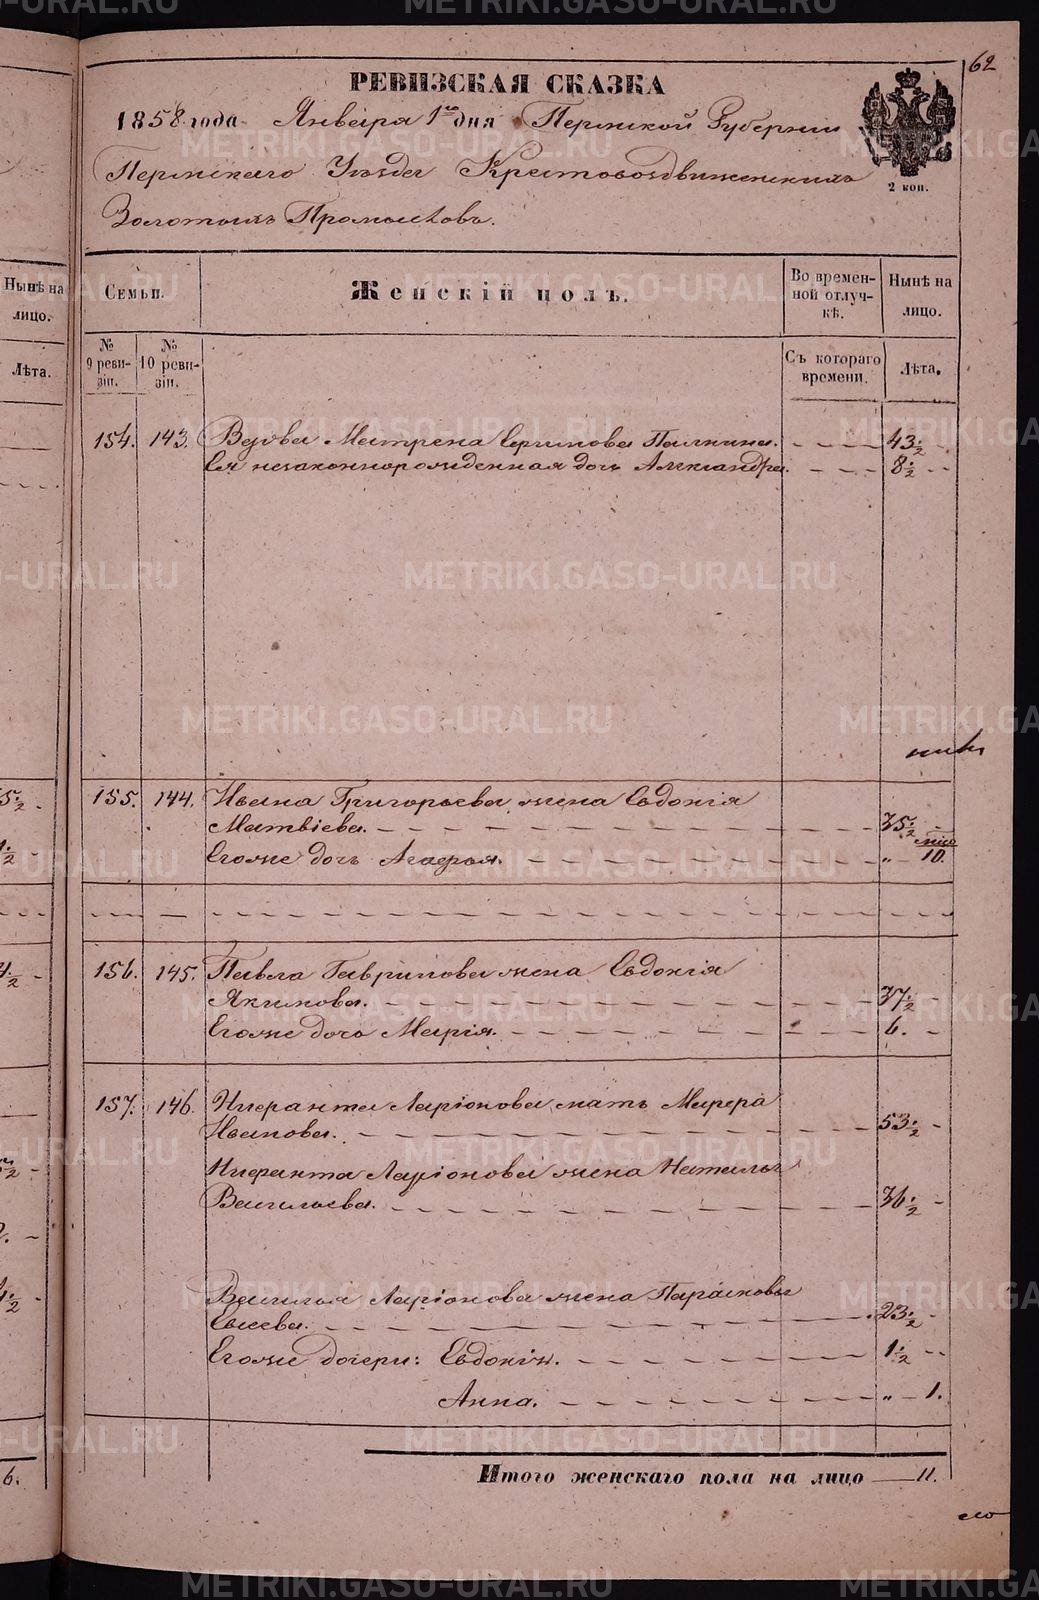 METRIKI.GASO-URAL.RU
62
РЕВИЗСКАЯ СКАЗКА
1858 года Января 1го дня Пермской Губерніи
Пермскаго Уѣзда Крестовоздвиженскихъ
Золотыхъ Промысловъ.
2 коп.
Нынѣ на лицо.
Лѣта.
Семьи.
Женскій полъ.
Во временной отлучкѣ.
Нынѣ на лицо.
№ 9 ревизіи.
№ 10 ревизіи.
Съ котораго времени.
Лѣта.
154. 143. Вдова Матрена Пашкина. 43 1/2
Ея незаконнорожденная дочь Александра. 8 1/2
155. 144. Ивана Григорьева жена Евдокія
Матвіева. 35 1/2
мѣс
Егоже дочь Агафья. „ 10.
156. 145. Павла Гаврилова жена Евдокія
Якимова. 37 1/2
Егоже дочь Марія. 6.
157. 146. Ларіонова мать
Иванова. 53 1/2
Ларіонова жена Наталья
Васильева. 36 1/2
Василья Ларіонова жена Парасковья
Евсеева. 23 1/2
Егоже дочери: Евдокія. 1 1/2
Анна. „ 1.
Итого женскаго пола на лицо 11.
6.